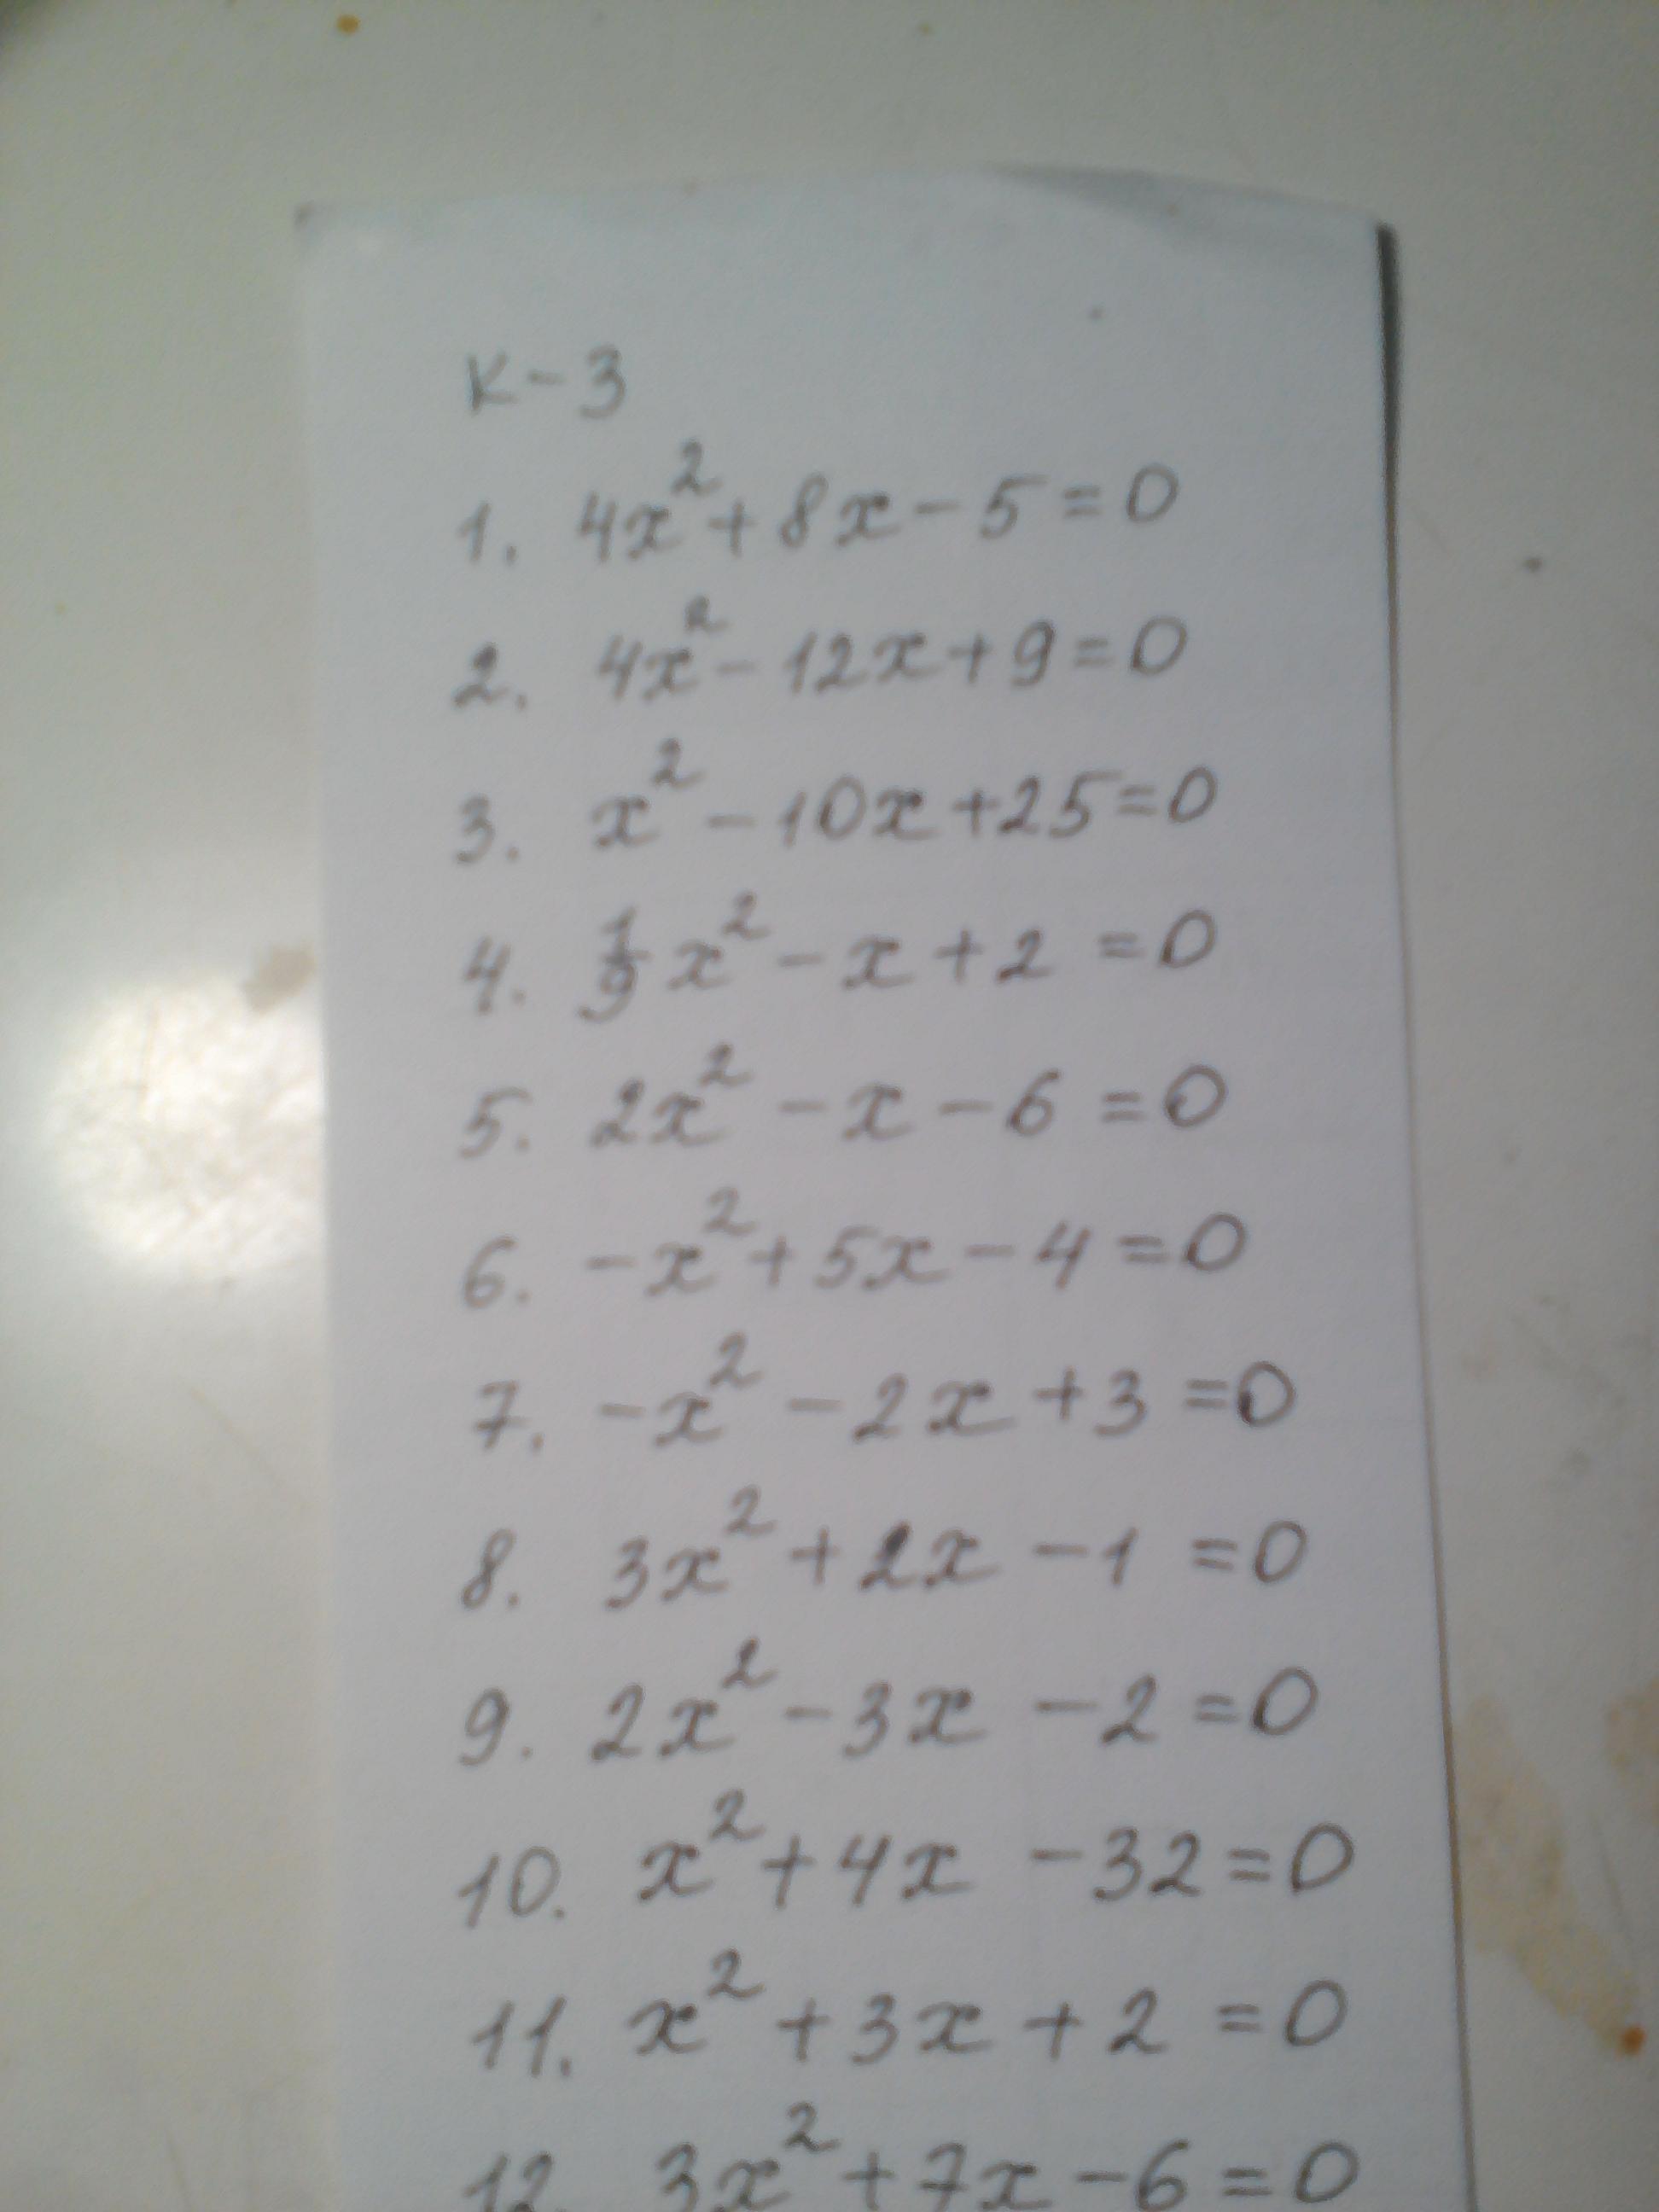 К-3
1. 4x² + 8x - 5 = 0
2. 4x² - 12x + 9 = 0
3. x² - 10x + 25 = 0
4. 1/9 x² - x + 2 = 0
5. 2x² - x - 6 = 0
6. -x² + 5x - 4 = 0
7. -x² - 2x + 3 = 0
8. 3x² + 2x - 1 = 0
9. 2x² - 3x - 2 = 0
10. x² + 4x - 32 = 0
11. x² + 3x + 2 = 0
12. 3x² + 7x - 6 = 0